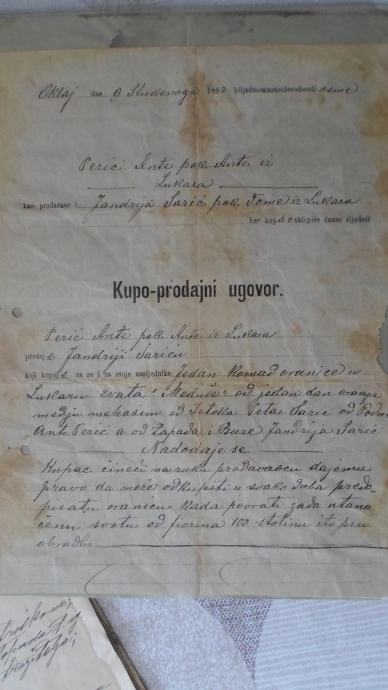 Oklaj dne 9 Studenoga 1898 hiljaduosamstoidevedeseti osme
Perić Ante pok. Ante iz
Lukara
kao prodavaoc i Jandrija Sarić pok. Tome iz Lukara
kao kupac sklopiše danas sljedeći
Kupo-prodajni ugovor.
Perić Ante pok. Ante iz Lukara
prodaje Jandriji Sariću
koji kupuje za se i za svoje nasljednike Jedan komad oranice u
Lukaru zvata "Meduše" od jedan dan oranja
medju mehasim od Istoka Petar Sarić od
Ante Perić a od Zapada i Bure Jandrija Sarić
Nadodaje se
Kupac čineći na ruku prodavaocu dajemu
pravo da može odkupiti u svako doba preda
pisatu oranicu kada povrati zada utana
čenu svotu od fiorina 100 stotinu i to prvu
obradbe